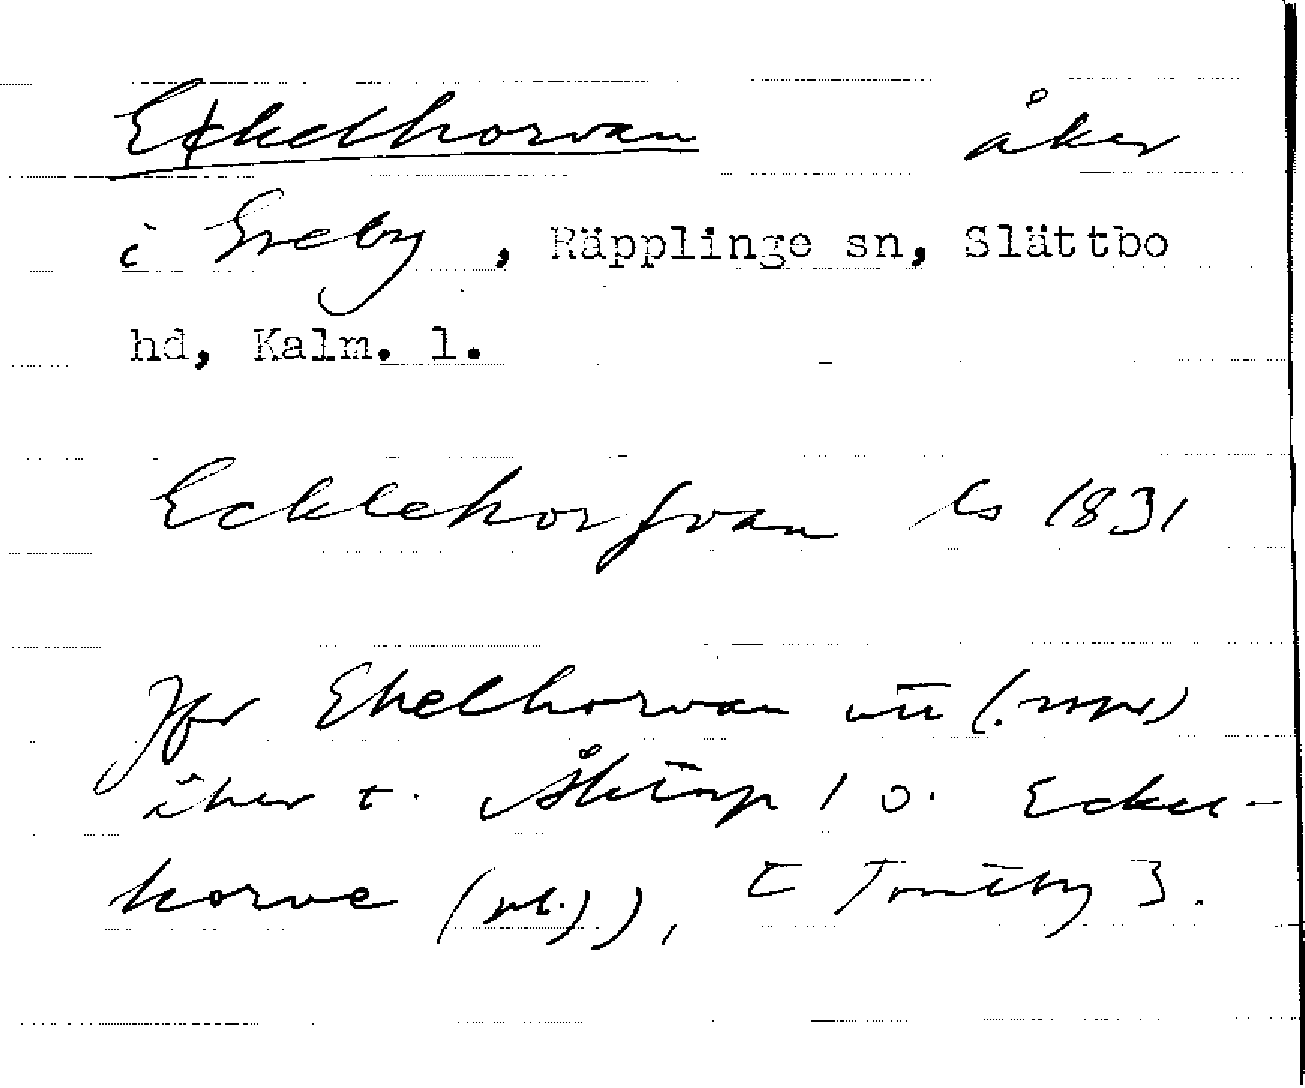 Ekelhorvan åker
i Greby, Räpplinge sn, Slättbo
hd, Kalm. l.
Ecklehorfvan ls 1831
Jfr Ekelhorvan
åker t. Åktorp 1 o. Eckel-
horve (pl.)), t Tomteby 3.